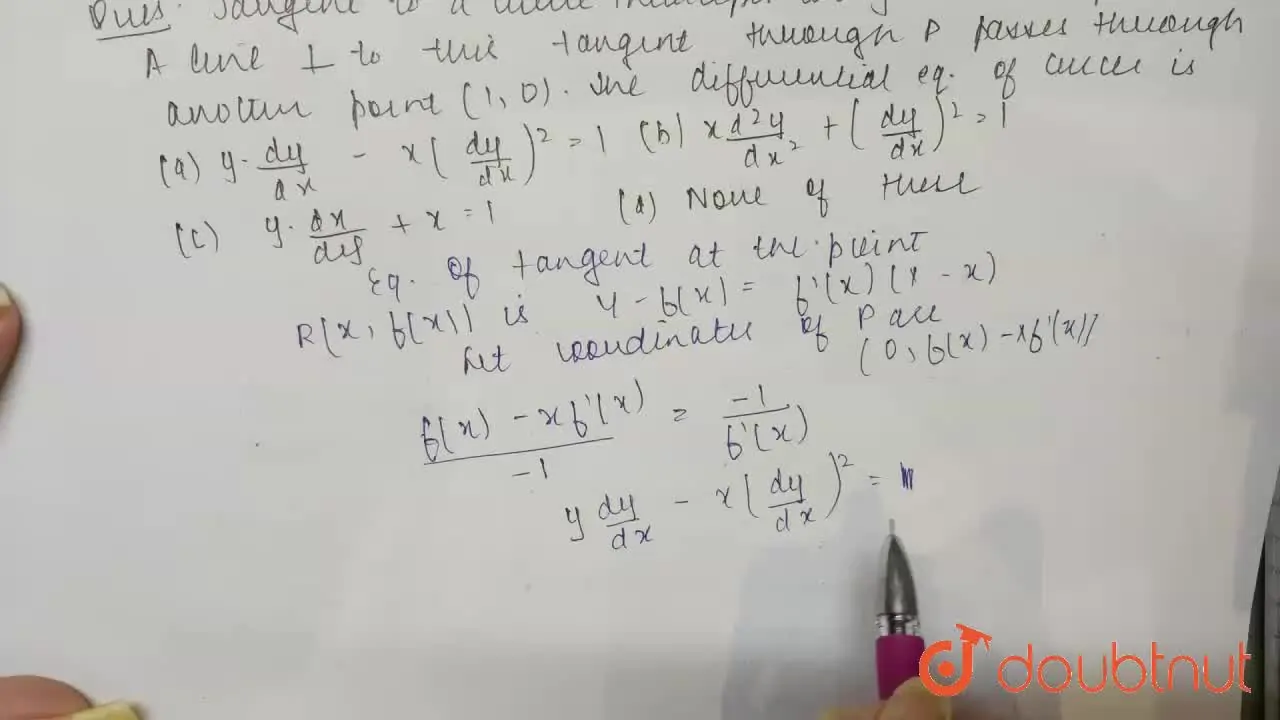 Ques. Tangent to a curve intercepts
A line ⊥ to this tangent through P passes through
another point (1, 0). The differential eq. of curve is
(a) y. dy/dx - x(dy/dx)² = 1 (b) x d²y/dx² + (dy/dx)² = 1
(c) y. dx/dy + x = 1 (d) None of these
Eq. of tangent at the point
R(x, f(x)) is Y - f(x) = f'(x)(X - x)
Let coordinates of P are
(0, f(x) - xf'(x))
f(x) - xf'(x) / -1 = -1 / f'(x)
y dy/dx - x(dy/dx)² =
doubtnut